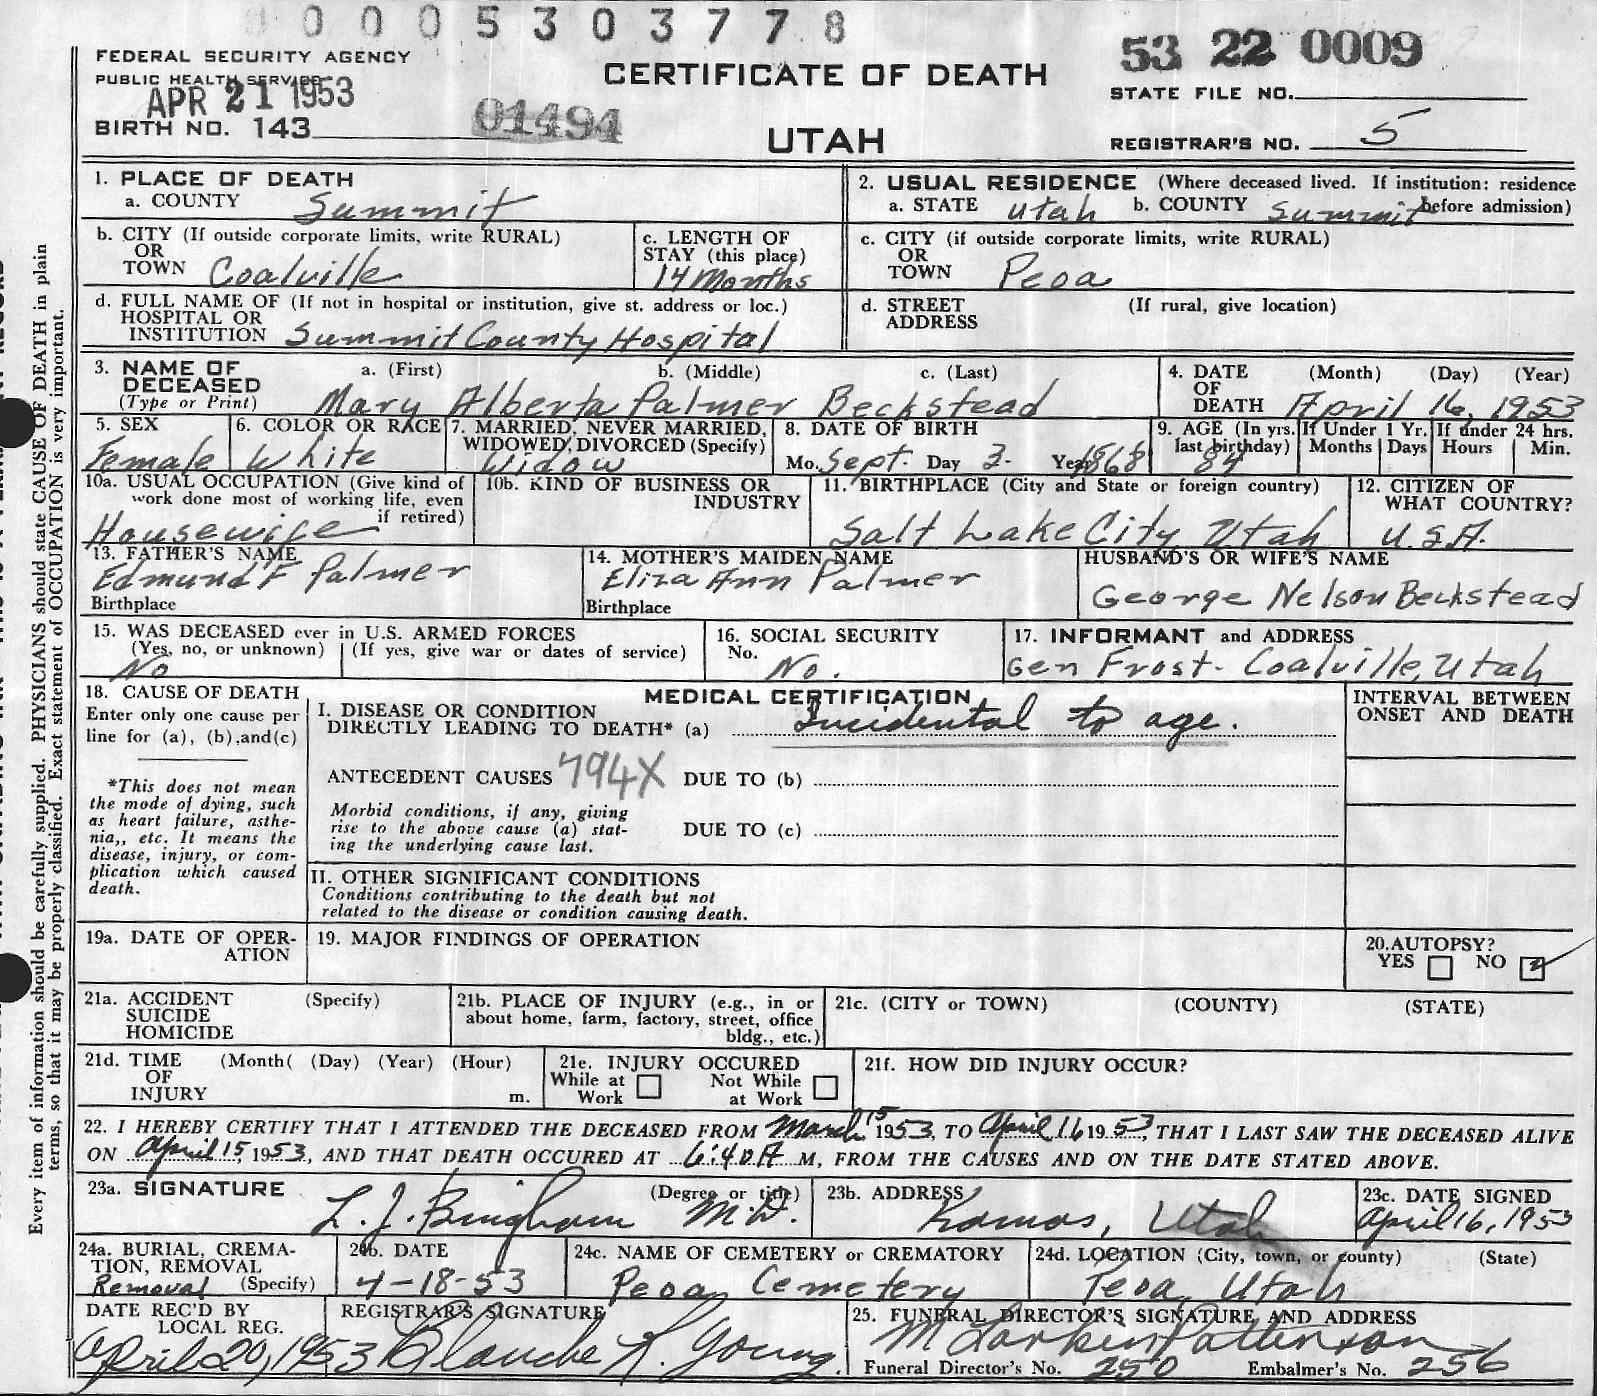 0 0 0 0 5 3 0 3 7 7 8
FEDERAL SECURITY AGENCY
PUBLIC HEALTH SERVICE
APR 21 1953
BIRTH NO. 143
01494
CERTIFICATE OF DEATH
UTAH
53 22 0009
STATE FILE NO.
REGISTRAR'S NO. 5
1. PLACE OF DEATH
a. COUNTY Summit
2. USUAL RESIDENCE (Where deceased lived. If institution: residence before admission)
a. STATE Utah b. COUNTY Summit
b. CITY (If outside corporate limits, write RURAL)
OR
TOWN Coalville
c. LENGTH OF
STAY (this place)
14 Months
c. CITY (if outside corporate limits, write RURAL)
OR
TOWN Peoa
d. FULL NAME OF (If not in hospital or institution, give st. address or loc.)
HOSPITAL OR
INSTITUTION Summit County Hospital
d. STREET (If rural, give location)
ADDRESS
3. NAME OF
DECEASED
(Type or Print)
a. (First) b. (Middle) c. (Last)
Mary Alberta Palmer Beckstead
4. DATE (Month) (Day) (Year)
OF
DEATH April 16, 1953
5. SEX
Female
6. COLOR OR RACE
White
7. MARRIED, NEVER MARRIED,
WIDOWED, DIVORCED (Specify)
Widow
8. DATE OF BIRTH
Mo. Sept. Day 3- Year 1868
9. AGE (In yrs.
last birthday)
84
If Under 1 Yr.
Months Days
If under 24 hrs.
Hours Min.
10a. USUAL OCCUPATION (Give kind of
work done most of working life, even
if retired)
Housewife
10b. KIND OF BUSINESS OR
INDUSTRY
11. BIRTHPLACE (City and State or foreign country)
Salt Lake City, Utah
12. CITIZEN OF
WHAT COUNTRY?
U.S.A.
13. FATHER'S NAME
Edmund F Palmer
Birthplace
14. MOTHER'S MAIDEN NAME
Eliza Ann Palmer
Birthplace
HUSBAND'S OR WIFE'S NAME
George Nelson Beckstead
15. WAS DECEASED ever in U.S. ARMED FORCES
(Yes, no, or unknown) (If yes, give war or dates of service)
No
16. SOCIAL SECURITY
No. No.
17. INFORMANT and ADDRESS
Gen Frost- Coalville, Utah
18. CAUSE OF DEATH
Enter only one cause per
line for (a), (b),and(c)
*This does not mean
the mode of dying, such
as heart failure, asthe-
nia,, etc. It means the
disease, injury, or com-
plication which caused
death.
MEDICAL CERTIFICATION
I. DISEASE OR CONDITION
DIRECTLY LEADING TO DEATH* (a) Incidental to age.
ANTECEDENT CAUSES 794X DUE TO (b)
Morbid conditions, if any, giving
rise to the above cause (a) stat-
ing the underlying cause last.
DUE TO (c)
II. OTHER SIGNIFICANT CONDITIONS
Conditions contributing to the death but not
related to the disease or condition causing death.
INTERVAL BETWEEN
ONSET AND DEATH
19a. DATE OF OPER-
ATION
19. MAJOR FINDINGS OF OPERATION
20.AUTOPSY?
YES NO
21a. ACCIDENT (Specify)
SUICIDE
HOMICIDE
21b. PLACE OF INJURY (e.g., in or
about home, farm, factory, street, office
bldg., etc.)
21c. (CITY or TOWN) (COUNTY) (STATE)
21d. TIME (Month( (Day) (Year) (Hour)
OF
INJURY m.
21e. INJURY OCCURED
While at Work Not While at Work
21f. HOW DID INJURY OCCUR?
22. I HEREBY CERTIFY THAT I ATTENDED THE DECEASED FROM March 15 1953, TO April 16 1953, THAT I LAST SAW THE DECEASED ALIVE
ON April 15, 1953, AND THAT DEATH OCCURED AT 6:40A M, FROM THE CAUSES AND ON THE DATE STATED ABOVE.
23a. SIGNATURE (Degree or title)
L. J. Bingham M.D.
23b. ADDRESS
Kamas, Utah
23c. DATE SIGNED
April 16, 1953
24a. BURIAL, CREMA-
TION, REMOVAL
Removal (Specify)
24b. DATE
4-18-53
24c. NAME OF CEMETERY or CREMATORY
Peoa Cemetery
24d. LOCATION (City, town, or county) (State)
Peoa, Utah
DATE REC'D BY
LOCAL REG.
April 20, 1953
REGISTRAR'S SIGNATURE
Blanche K. Young
25. FUNERAL DIRECTOR'S SIGNATURE AND ADDRESS
Funeral Director's No. 250 Embalmer's No. 256
Every item of information should be carefully supplied. PHYSICIANS should state CAUSE OF DEATH in plain
terms, so that it may be properly classified. Exact statement of OCCUPATION is very important.